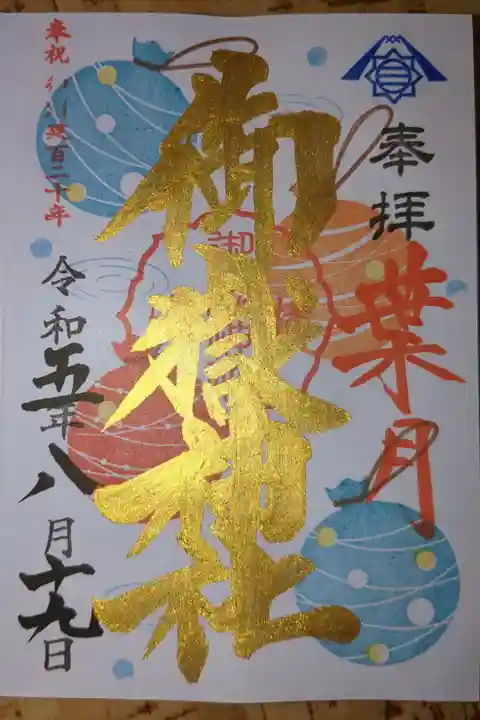 奉拝
葉月
御嶽神社
奉祝 百二十年
令和五年八月十九日